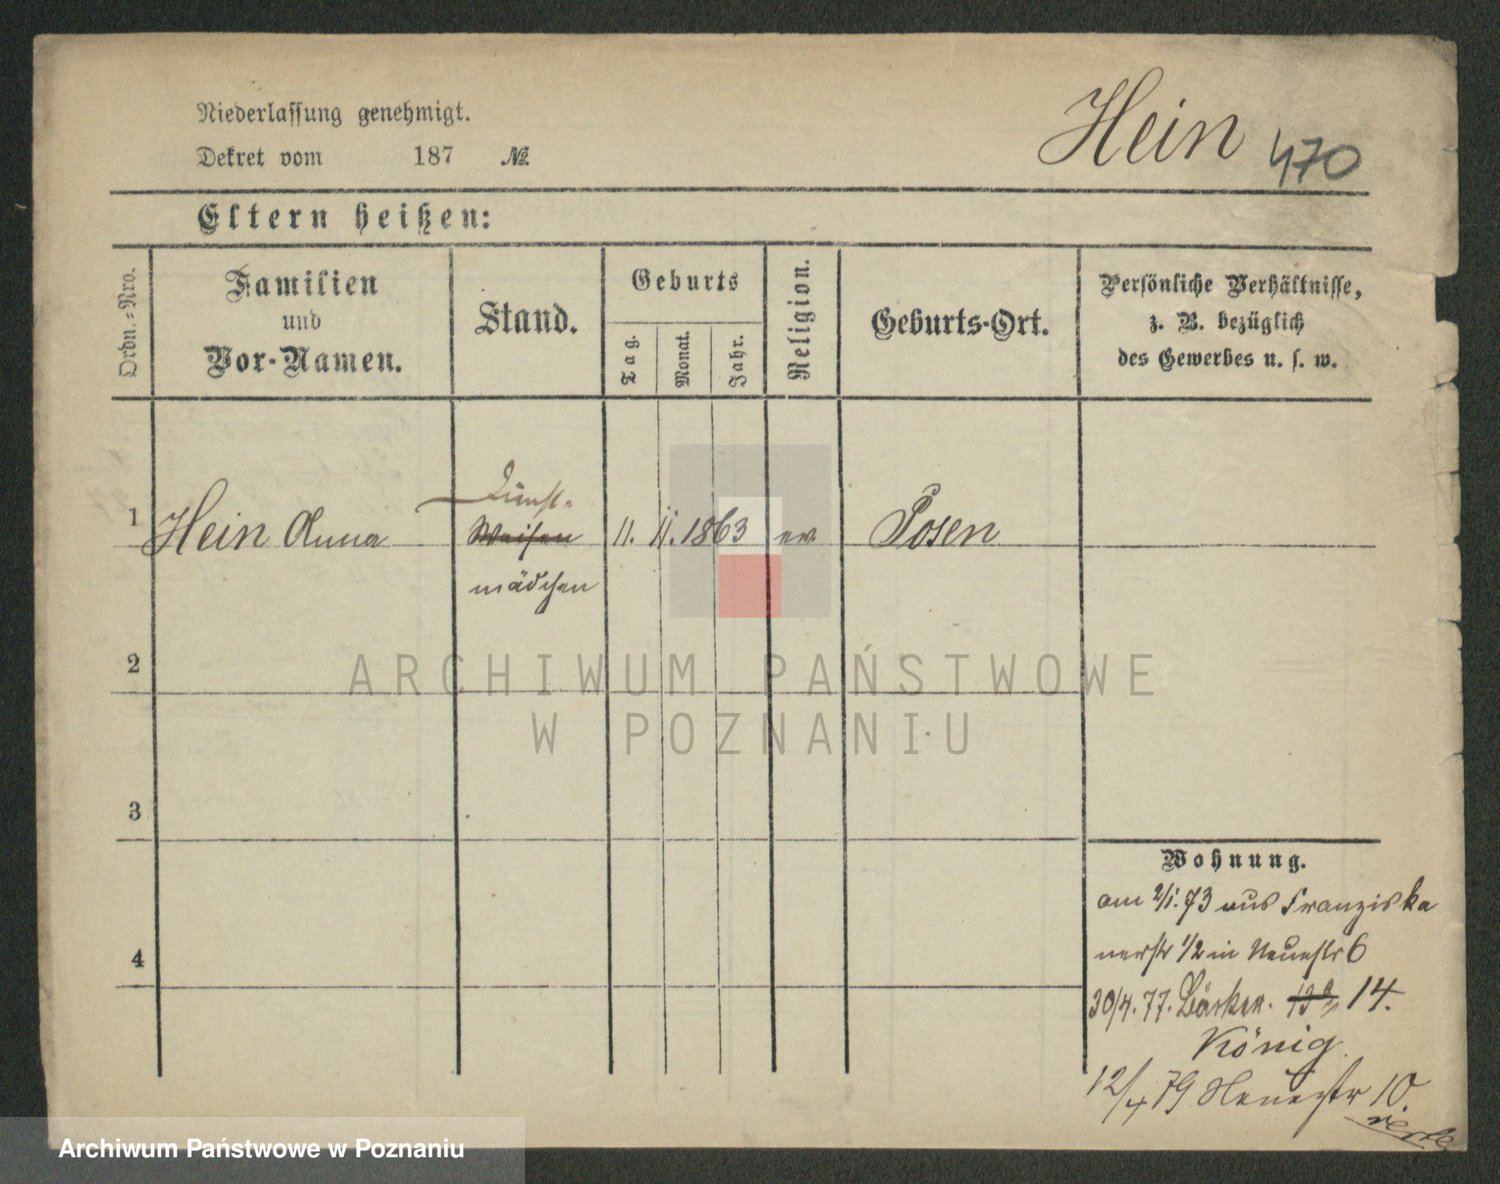 Niederlassung genehmigt.
Hein 470
Dekret vom 187 №
Eltern heißen:
Ordn.=Nro.
Familien
und
Vor-Namen.
Stand.
Geburts
Tag.
Monat.
Jahr.
Religion.
Geburts-Ort.
Persönliche Verhältnisse,
z. B. bezüglich
des Gewerbes u. s. w.
Dienst-
1 Hein Anna Waisen 11. 11. 1863 ev Posen
mädchen
2
ARCHIWUM PAŃSTWOWE
W POZNANIU
3
Wohnung.
am 2/1. 73 aus Franziska
nerstr 1/2 in Neuestr 6
4
30/4. 77. Bäcker. 14.
König
12/4 79 Neuestr 10.
Archiwum Państwowe w Poznaniu